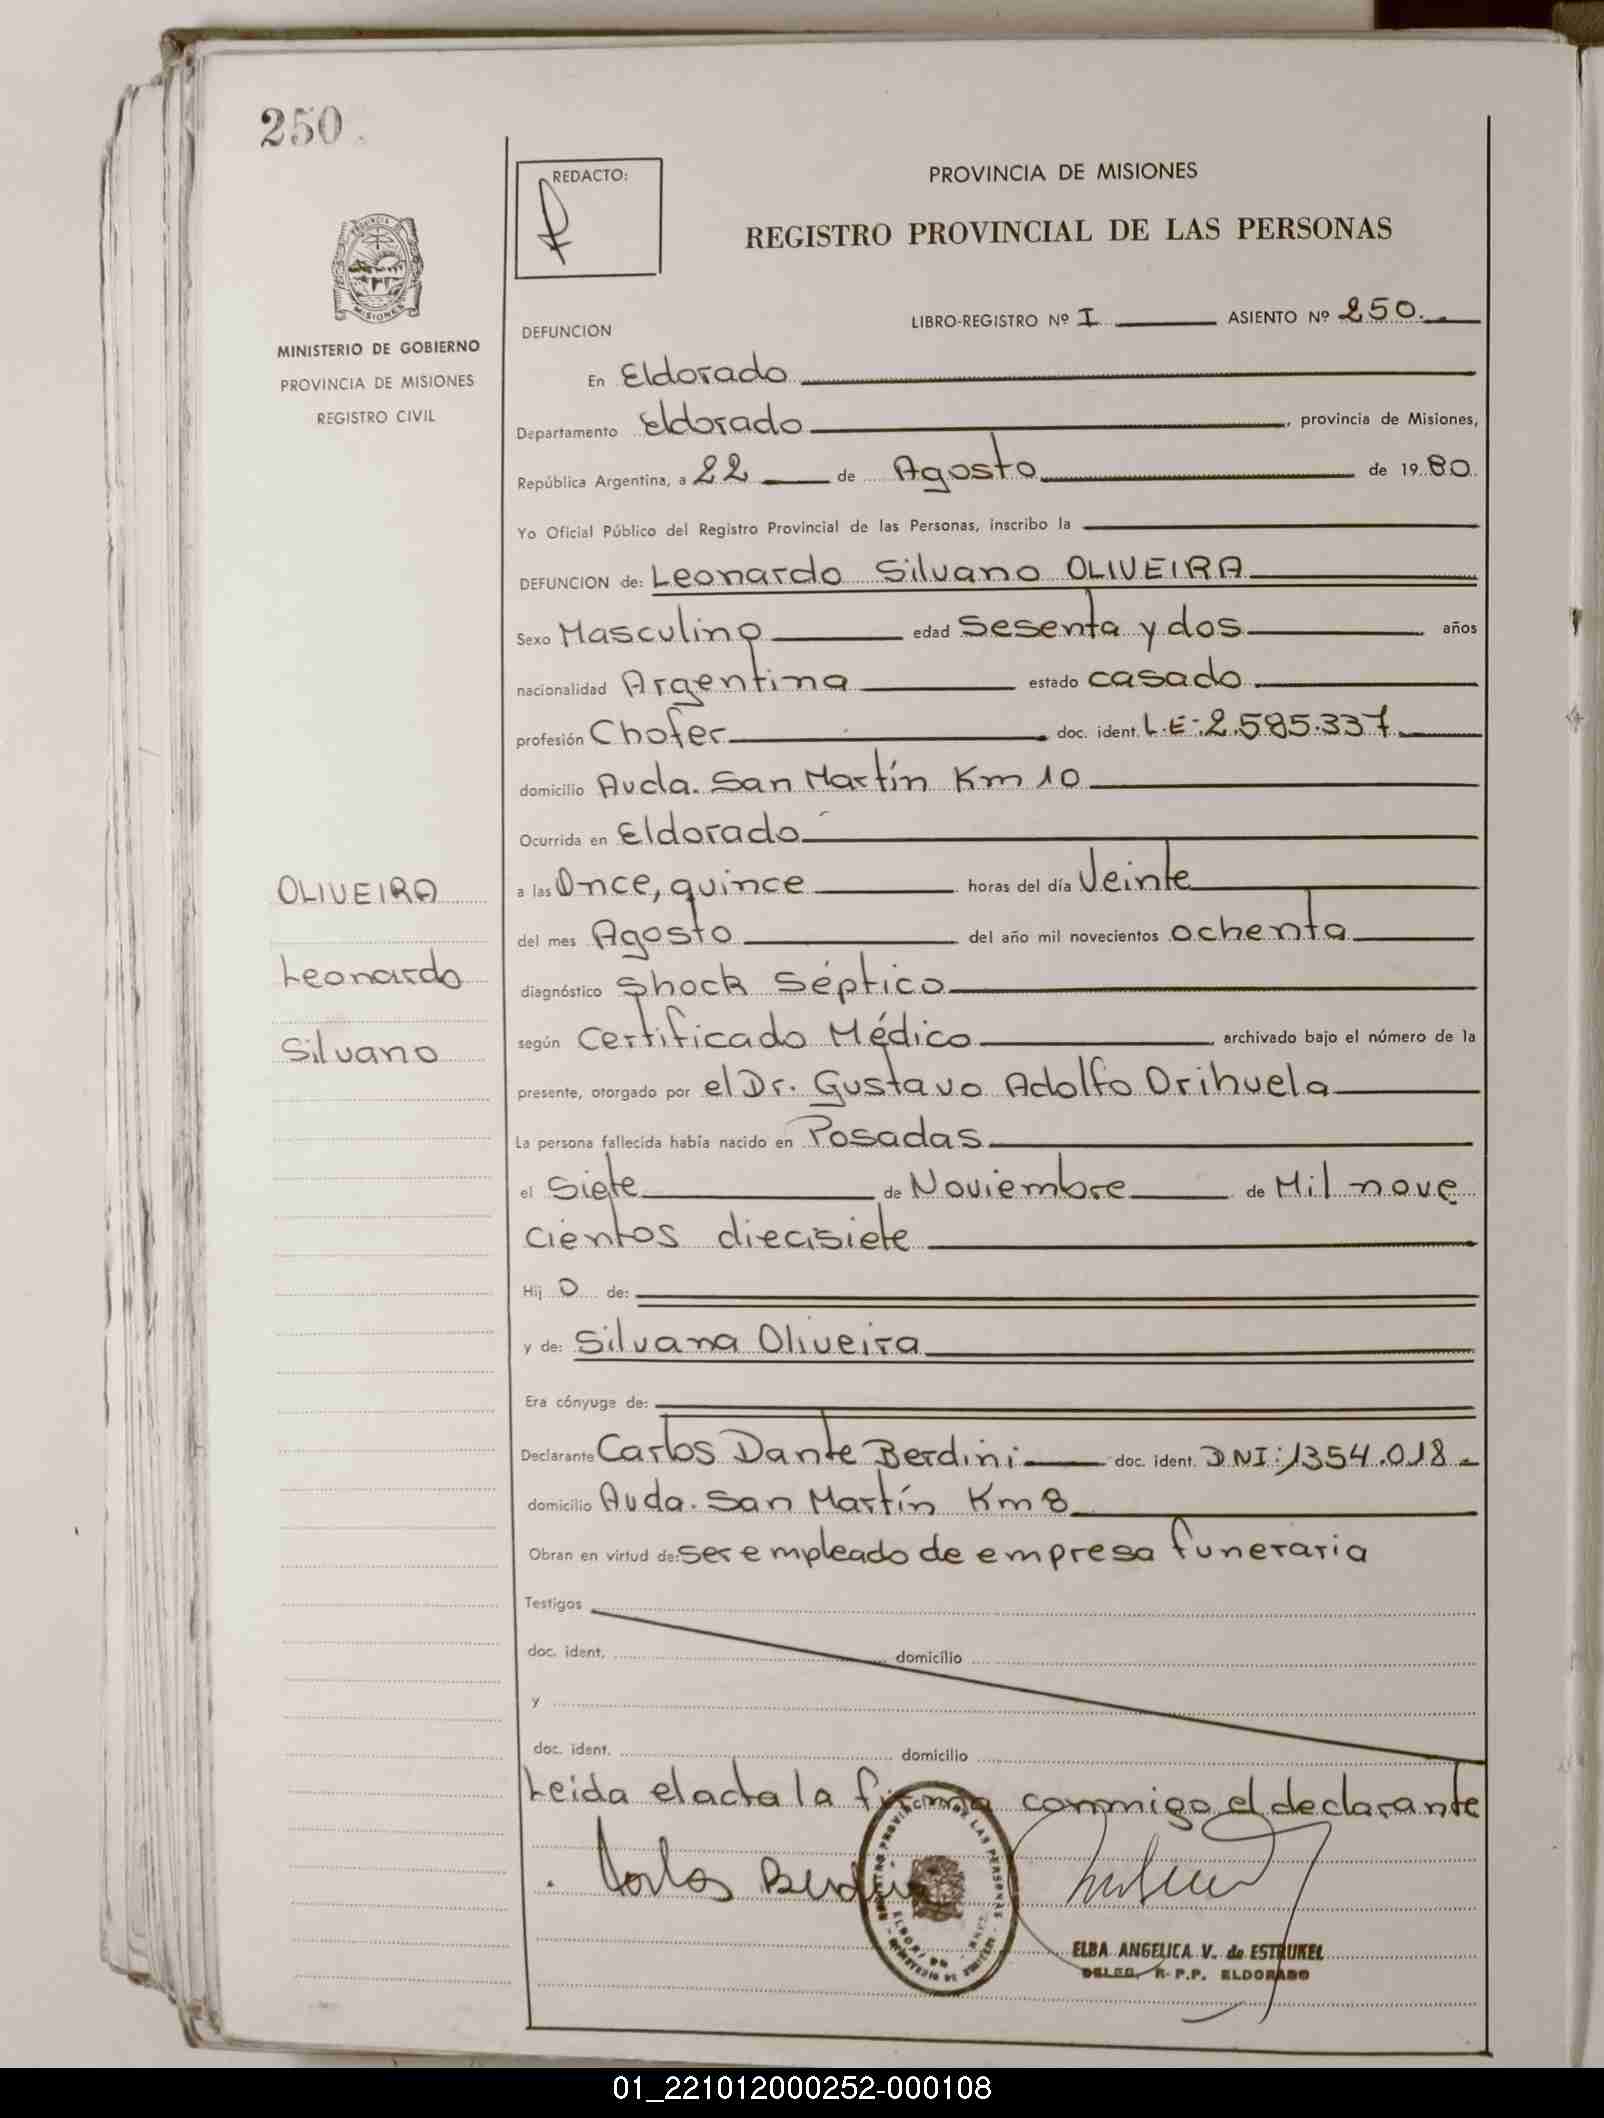 250
REDACTO:
PROVINCIA DE MISIONES
REGISTRO PROVINCIAL DE LAS PERSONAS
MISIONES
MINISTERIO DE GOBIERNO
PROVINCIA DE MISIONES
REGISTRO CIVIL
DEFUNCION
LIBRO-REGISTRO Nº I ASIENTO Nº 250.
En Eldorado
Departamento Eldorado, provincia de Misiones,
República Argentina, a 22 de Agosto de 1980.
Yo Oficial Público del Registro Provincial de las Personas, inscribo la
DEFUNCION de: Leonardo Silvano OLIVEIRA
Sexo Masculino edad Sesenta y dos años
nacionalidad Argentina estado casado
profesión Chofer doc. ident. L.E: 2.585.337
domicilio Avda. San Martín Km 10
Ocurrida en Eldorado
a las Once, quince horas del día Veinte
del mes Agosto del año mil novecientos ochenta
diagnóstico Shock Séptico
según Certificado Médico, archivado bajo el número de la
presente, otorgado por el Dr. Gustavo Adolfo Orihuela
La persona fallecida había nacido en Posadas
el Siete de Noviembre de Mil nove
cientos diecisiete
Hij o de:
y de: Silvana Oliveira
Era cónyuge de:
Declarante Carlos Dante Berdini doc. ident. DNI: 1354.018
domicilio Avda. San Martín Km 8
Obran en virtud de: ser empleado de empresa funeraria
Testigos
doc. ident. domicilio
y
doc. ident. domicilio
Leida el acta la firma conmigo el declarante
Carlos Berdini
ELBA ANGELICA V. de ESTRUKEL
DELEG. R.P.P. ELDORADO
OLIVEIRA
Leonardo
Silvano
01_221012000252-000108